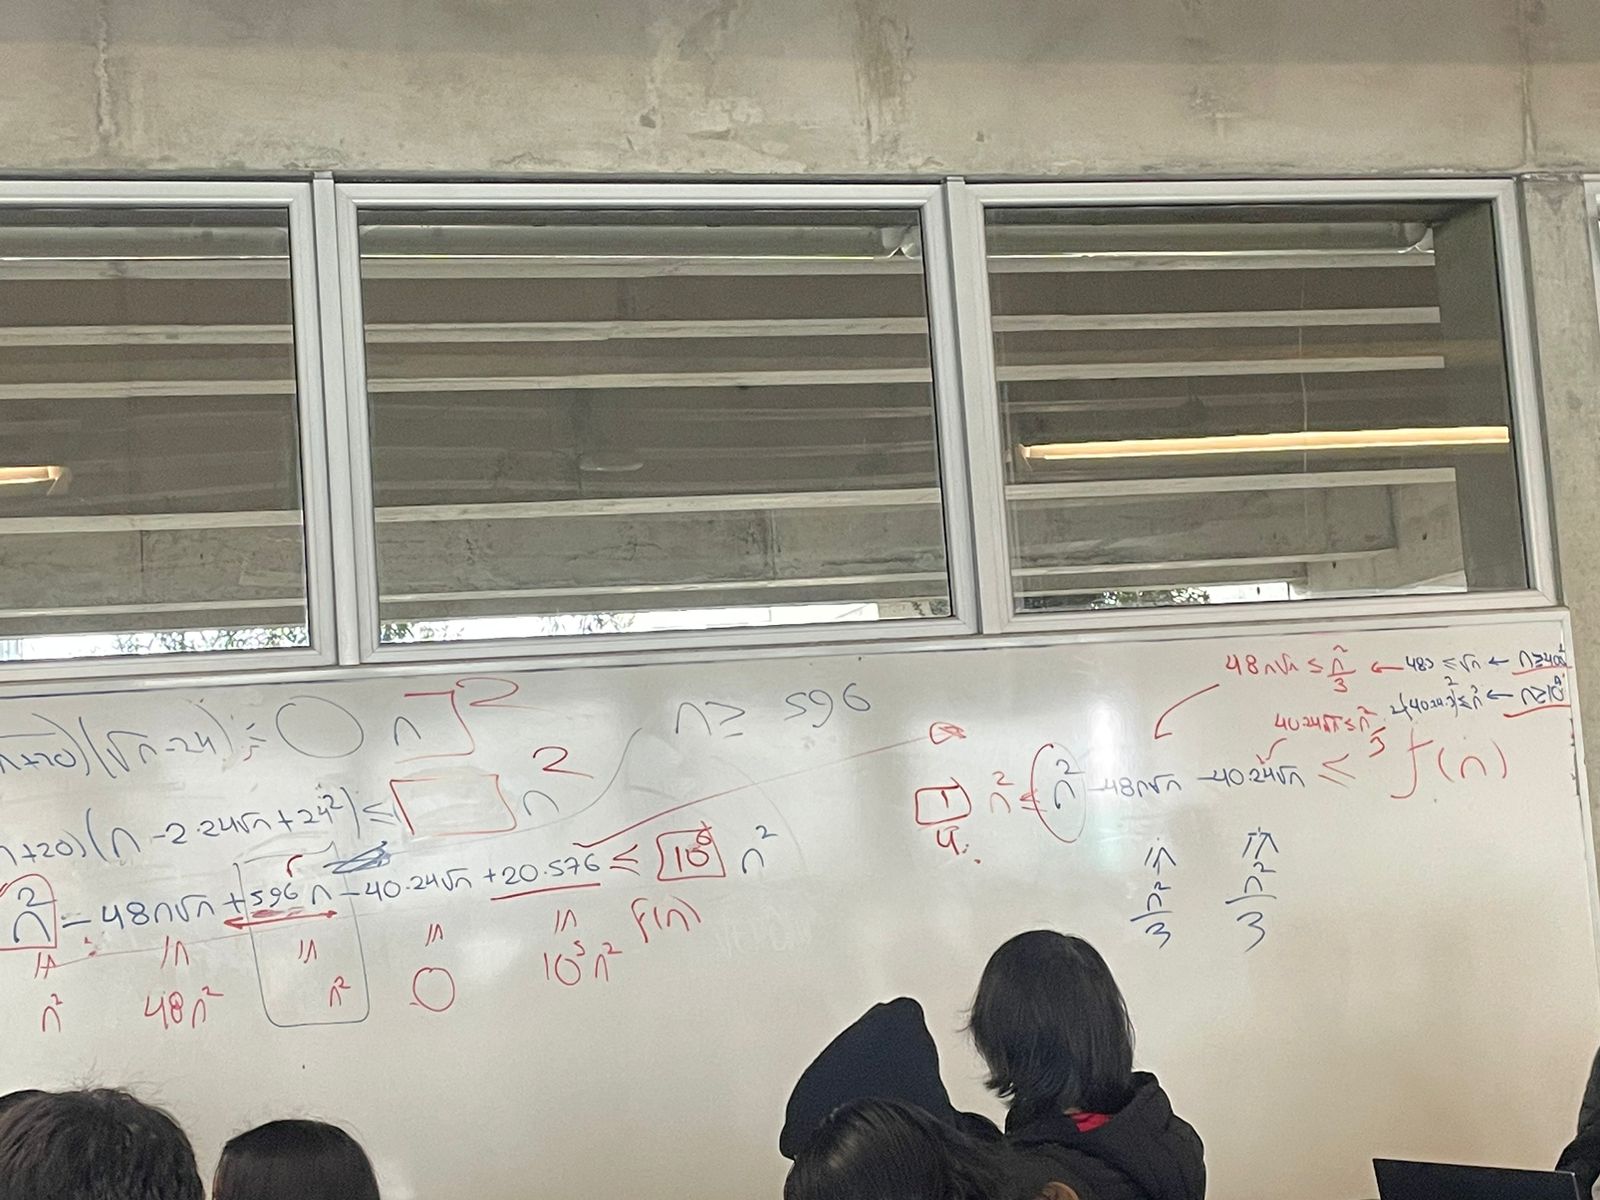 n+20)(√n-24) ≤ n²
n ≥ 596
n+20)(n-2·24√n+24²) ≤ n²
n² - 48n√n + 596n - 40·24√n + 20·576 ≤ n²
f(n)
n² 48n² n² 0 10⁵n²
48n√n ≤ n²/3 ← 48·3 ≤ √n ← n≥400²
40·24√n ≤ n²/3 ← n≥10⁸
1/4 n² ≤ n² - 48n√n - 40·24√n ≤ f(n)
n²/3 n²/3